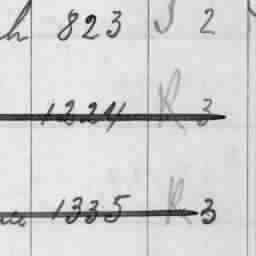 h 823 S 2
1224 R 3
1335 R 3